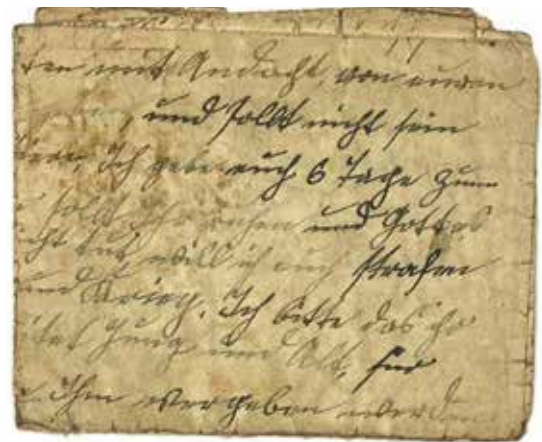 mit Andacht, von euren
und sollt nicht sein
Ich gebe euch 6 Tage zum
sollt ihr ruhen und Gottes
tut, will ich euch strafen
und Krieg. Ich bitte das ihr
Jung und Alt, für
Ihm vergeben werden